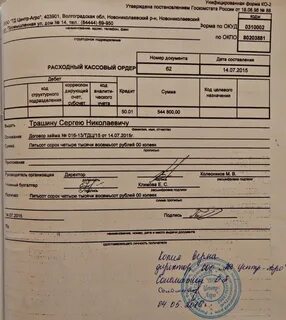 Унифицированная форма КО-2
Утверждена постановлением Госкомстата России от 18.08.98 № 88
коды
Форма по ОКУД 0310002
ООО "ТД Центр-Агро", 403901, Волгоградская обл, Новониколаевский р-н, Новониколаевский
Промышленная ул, дом № 14, тел. (84444) 69-950
по ОКПО 80203881
структурное подразделение
Номер документа Дата составления
РАСХОДНЫЙ КАССОВЫЙ ОРДЕР 62 14.07.2015
Дебет
код структурного подразделения
корреспондирующий счет, субсчет
код аналитического учета
Кредит
Сумма
Код целевого назначения
50.01 544 800.00
Трашину Сергею Николаевичу
фамилия, имя, отчество
Договор займа № 016-13/ТДЦ/15 от 14.07.2015г.
Пятьсот сорок четыре тысячи восемьсот рублей 00 копеек
Руководитель организации Директор Колесников М. В.
Главный бухгалтер Климова Е. С.
Пятьсот сорок четыре тысячи восемьсот рублей 00 копеек
14.07.2015 Подпись
Копия верна
директор ООО "ТД Центр-Агро"
04.05.